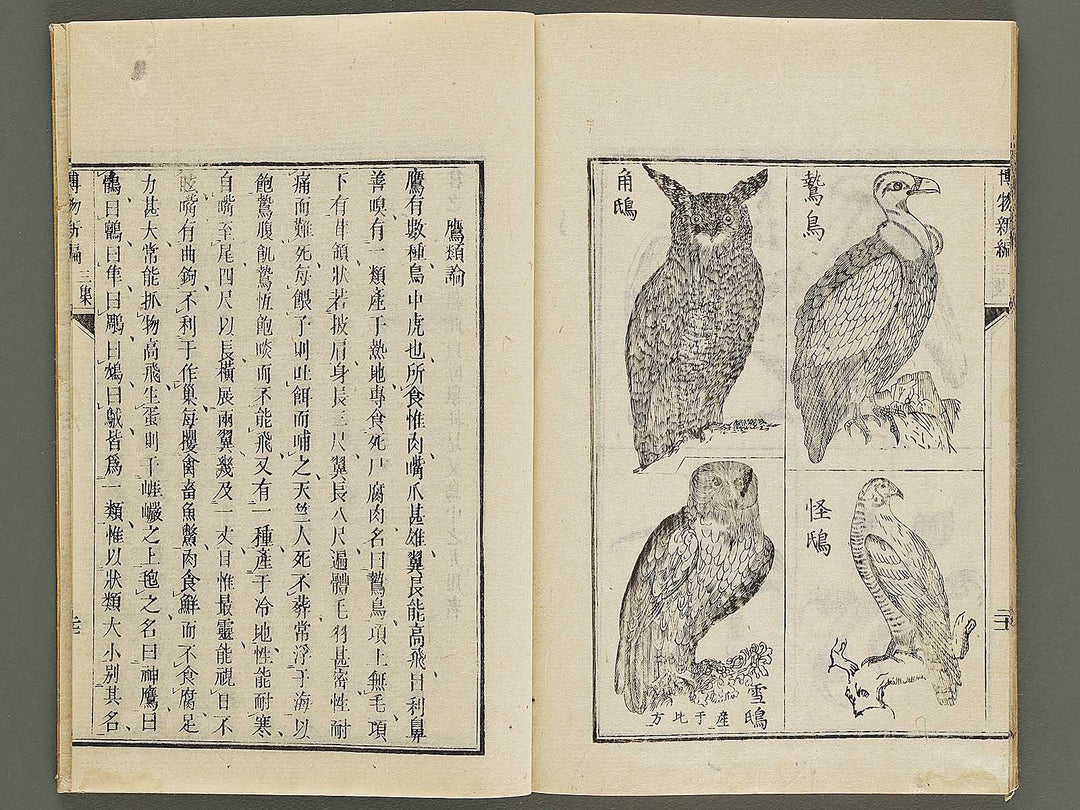 博物新編
鷙鳥
角鴟
怪鴟
雪鴟
產于北方
鷹類論
鷹有數種鳥中虎也所食惟肉嘴爪甚雄翼長能高飛目利鼻
善嗅有一類產于熱地專食死尸腐肉名曰鷙鳥項上無毛項
下有茸領狀若披肩身長三尺翼長八尺遍體毛羽甚密性耐
痛而難死每餵子則吐餌而哺之天竺人死不葬常浮于海以
飽鷙腹飢鷙恆飽啖而不能飛又有一種產于冷地性能耐寒
自嘴至尾四尺以長橫展兩翼幾及一丈目惟最靈能視日不
眩嘴有曲鉤不利于作巢每攫禽畜魚鱉肉食鮮而不食腐足
力甚大常能抓物高飛生蛋則于崕巖之上䨰之名曰神鷹曰
鶻曰鸇曰隼曰鵰曰鴆曰䳗皆爲一類惟以狀類大小別其名
博物新編
三集